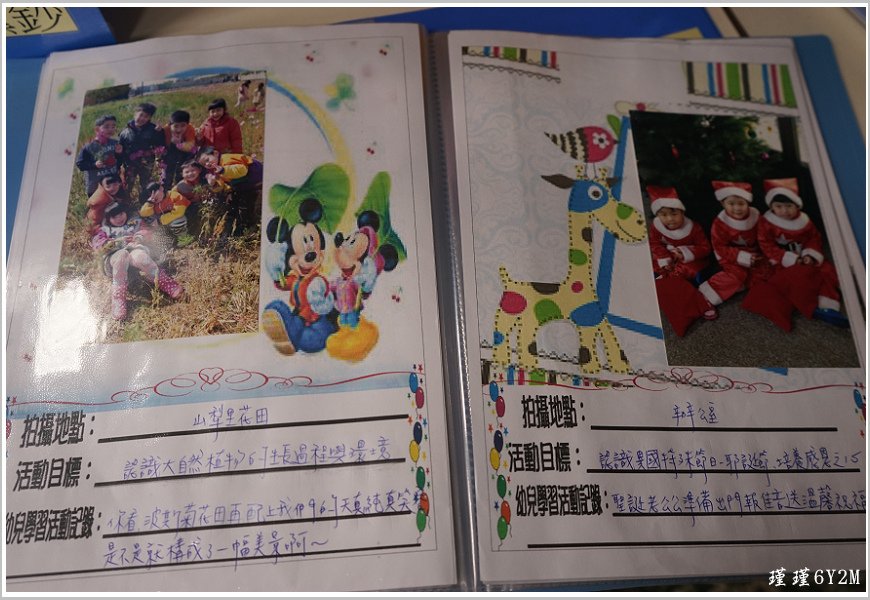 鈔
拍攝地點：山型里花田
活動目標：認識大自然植物的生長過程與環境
幼兒學習活動記錄：你看波斯菊花田再配上我們的天真純真笑
是不是就構成了一幅美景啊～
拍攝地點：辦公室
活動目標：認識異國特殊節日-耶誕節,培養感恩之心
幼兒學習活動記錄：聖誕老公公準備出門報佳音送溫馨祝福
瑾瑾6Y2M